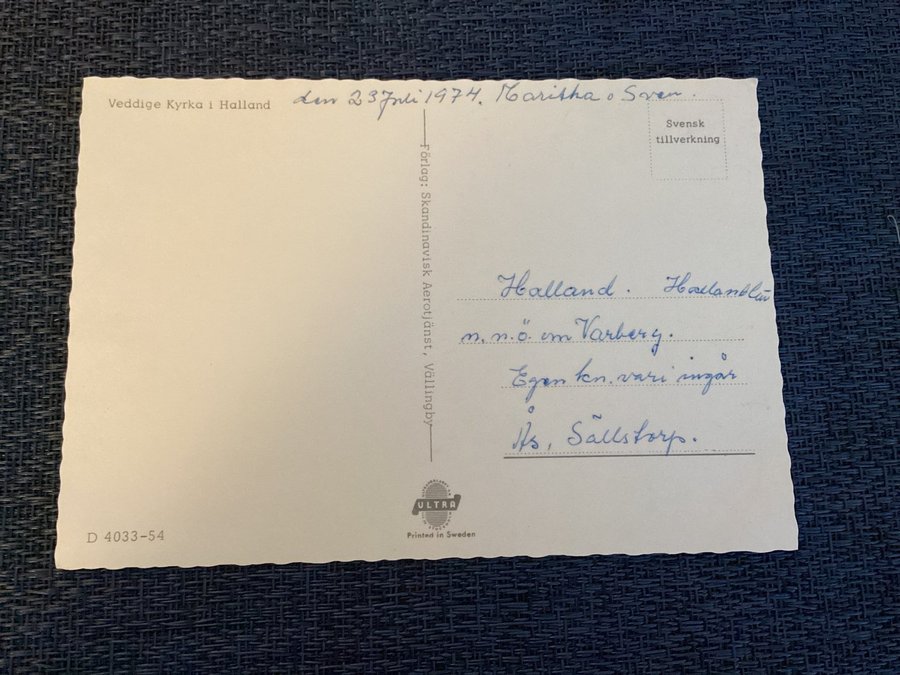 Veddige Kyrka i Halland
den 23 Juli 1974. Maritha o Sven.
Svensk
tillverkning
Förlag: Skandinavisk Aerotjänst, Vällingby
Halland. Hallands län
n.n.ö. om Varberg.
Egen kn. vari ingår
Ås, Sällstorp.
ULTRA
Printed in Sweden
D 4033-54